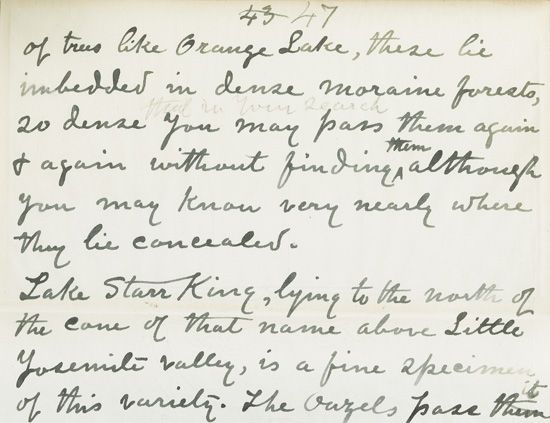 43 47
of trees like Orange Lake, these lie
imbedded in dense moraine forests,
that in your search
so dense you may pass them again
& again without finding them although
you may know very nearly where
they lie concealed.
Lake Starr King, lying to the north of
the cone of that name above Little
Yosemite valley, is a fine specimen
of this variety. The Ouzels pass them it